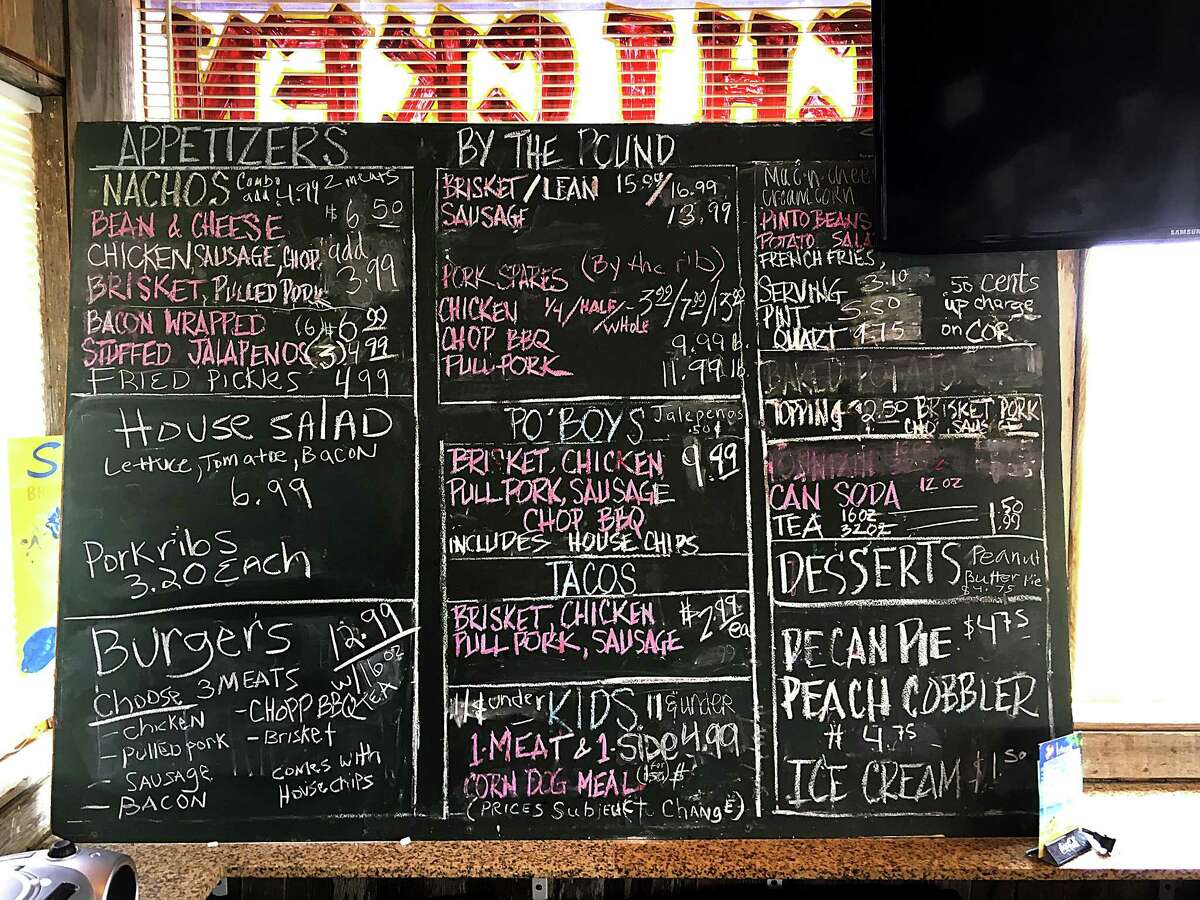 CHICKEN
SAMSUNG
APPETIZERS
NACHOS Combo add 4.99 2 meats
BEAN & CHEESE $6.50
CHICKEN, SAUSAGE, CHOP. add
BRISKET, PULLED PORK 3.99
BACON WRAPPED (6) $6.99
STUFFED JALAPENOS (3) 4.99
FRIED PICKLES 4.99
HOUSE SALAD
Lettuce, Tomatoe, BACON
6.99
Pork ribs
3.20 Each
Burgers 12.99
W/16oz TEA
Choose 3 MEATS
- Chicken
- Pulled pork
- SAUSAGE
- BACON
- CHOPP BBQ
- Brisket
comes with
House chips
BY THE POUND
BRISKET/LEAN 15.99/16.99
SAUSAGE 13.99
PORK SPARES (By the rib)
CHICKEN 1/4/HALF/WHOLE 3.99/7.99/13.99
CHOP BBQ 9.99 lb.
PULL PORK 11.99 lb
PO'BOYS Jalepenos .50¢
BRISKET, CHICKEN 9.49
PULL PORK, SAUSAGE
CHOP BBQ
INCLUDES HOUSE CHIPS
TACOS
BRISKET, CHICKEN $2.99 ea
PULL PORK, SAUSAGE
11 & under KIDS 11 & under
1 MEAT & 1 SIDE 4.99
CORN DOG MEAL
(PRICES SubjECT to CHANGE)
Mac-n-chee
cream corn
PINTO BEANS
POTATO SALA
FRENCH FRIES
SERVING 3.10
PINT 5.50
QUART 9.75
50 cents
up charge
on COR
BAKED POTATO
TOPPING $2.50 BRISKET, PORK
CHO, SAUSAGE
CAN SODA 12 OZ
TEA 16 OZ 1.50
32 OZ 1.99
DESSERTS Peanut
Butter Pie
$4.75
PECAN PIE $4.75
PEACH COBBLER
$4.75
ICE CREAM $1.50